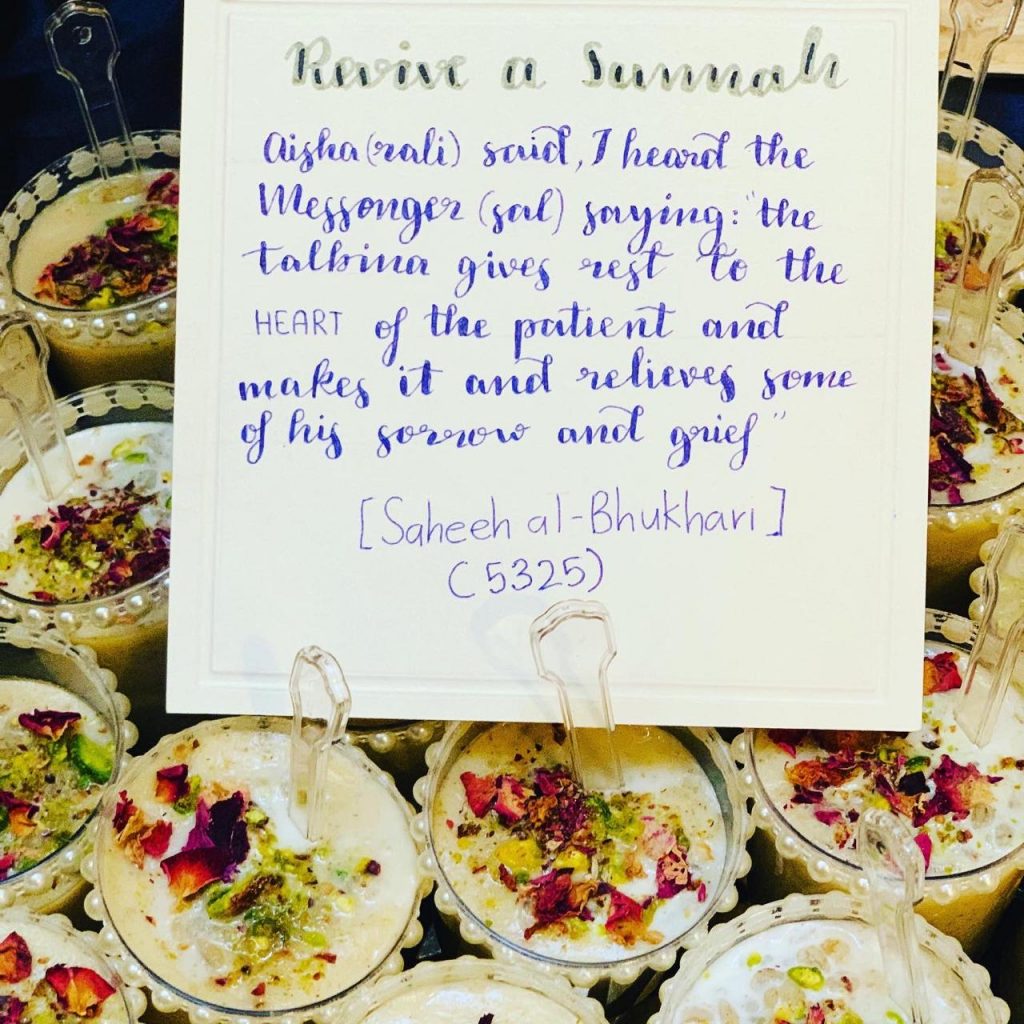 Revive a Sunnah
Aisha (rali) said, I heard the
Messonger (sal) saying: "the
talbina gives rest to the
HEART of the patient and
makes it and relieves some
of his sorrow and grief"
[Saheeh al-Bhukhari]
(5325)